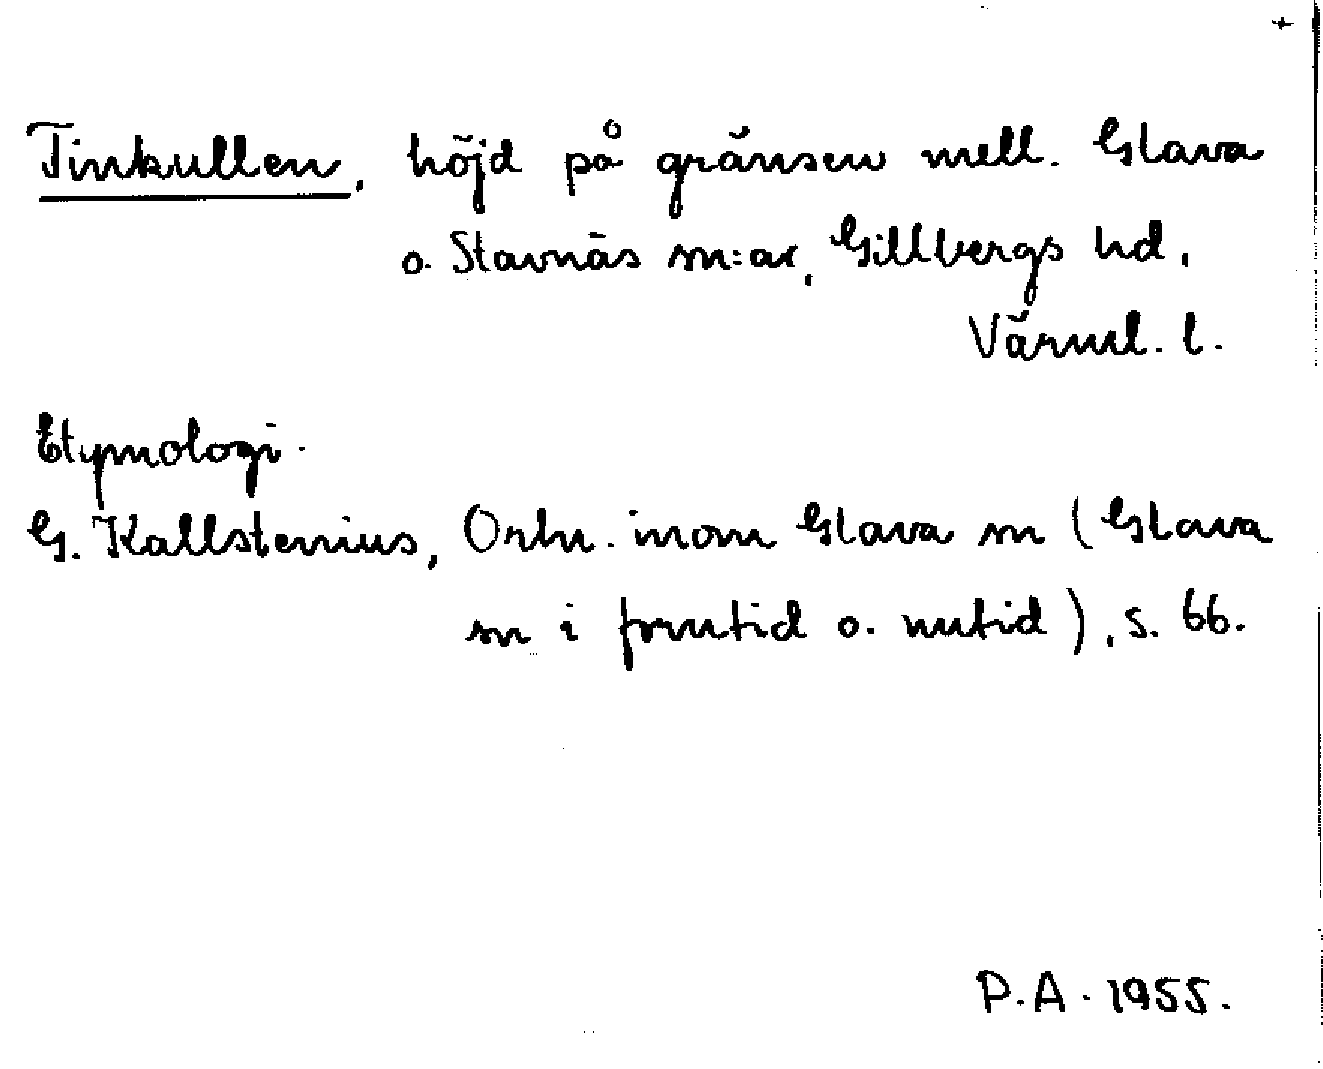 Tinkullen, höjd på gränsen mell. Glava
o. Stavnäs sn:ar, Gillbergs hd,
Värml. l.
Etymologi.
G. Kallstenius, Ortn. inom Glava sn (Glava
sn i forntid o. nutid), s. 66.
P.A. 1955.